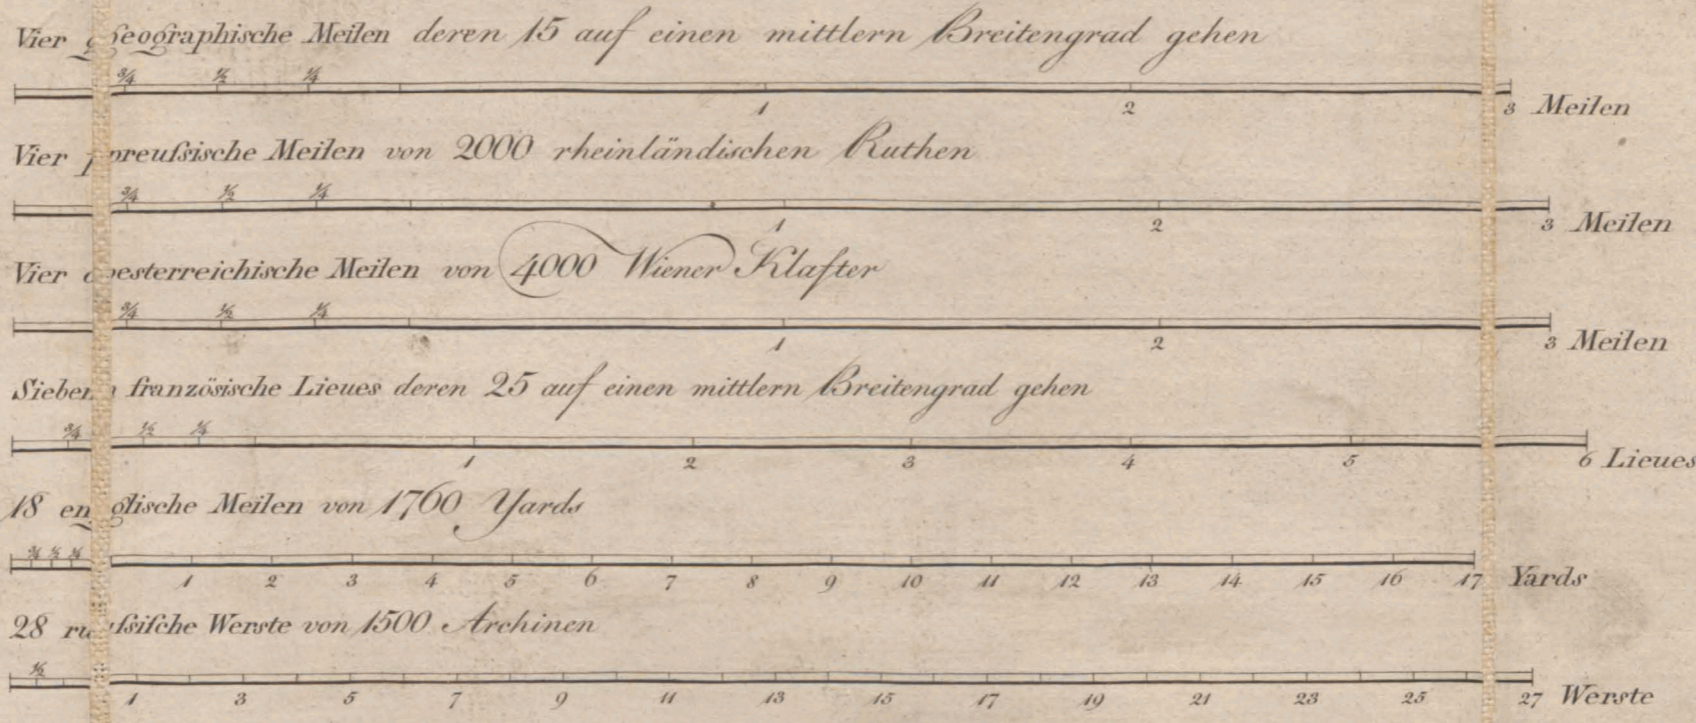 Vier geographische Meilen deren 15 auf einen mittlern Breitengrad gehen
¾ ½ ¼
1 2 3 Meilen
Vier preuſsische Meilen von 2000 rheinländischen Ruthen
¾ ½ ¼
1 2 3 Meilen
Vier oesterreichische Meilen von 4000 Wiener Klafter
¾ ½ ¼
1 2 3 Meilen
Sieben französische Lieues deren 25 auf einen mittlern Breitengrad gehen
¾ ½ ¼
1 2 3 4 5 6 Lieues
18 englische Meilen von 1760 Yards
¾ ½ ¼
1 2 3 4 5 6 7 8 9 10 11 12 13 14 15 16 17 Yards
28 ruſsiſche Werste von 1500 Archinen
½
1 3 5 7 9 11 13 15 17 19 21 23 25 27 Werste